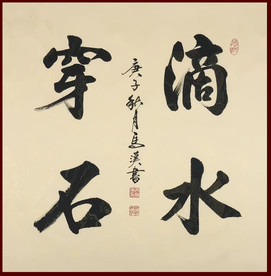 滴水
穿石
庚子秋月馬漢書